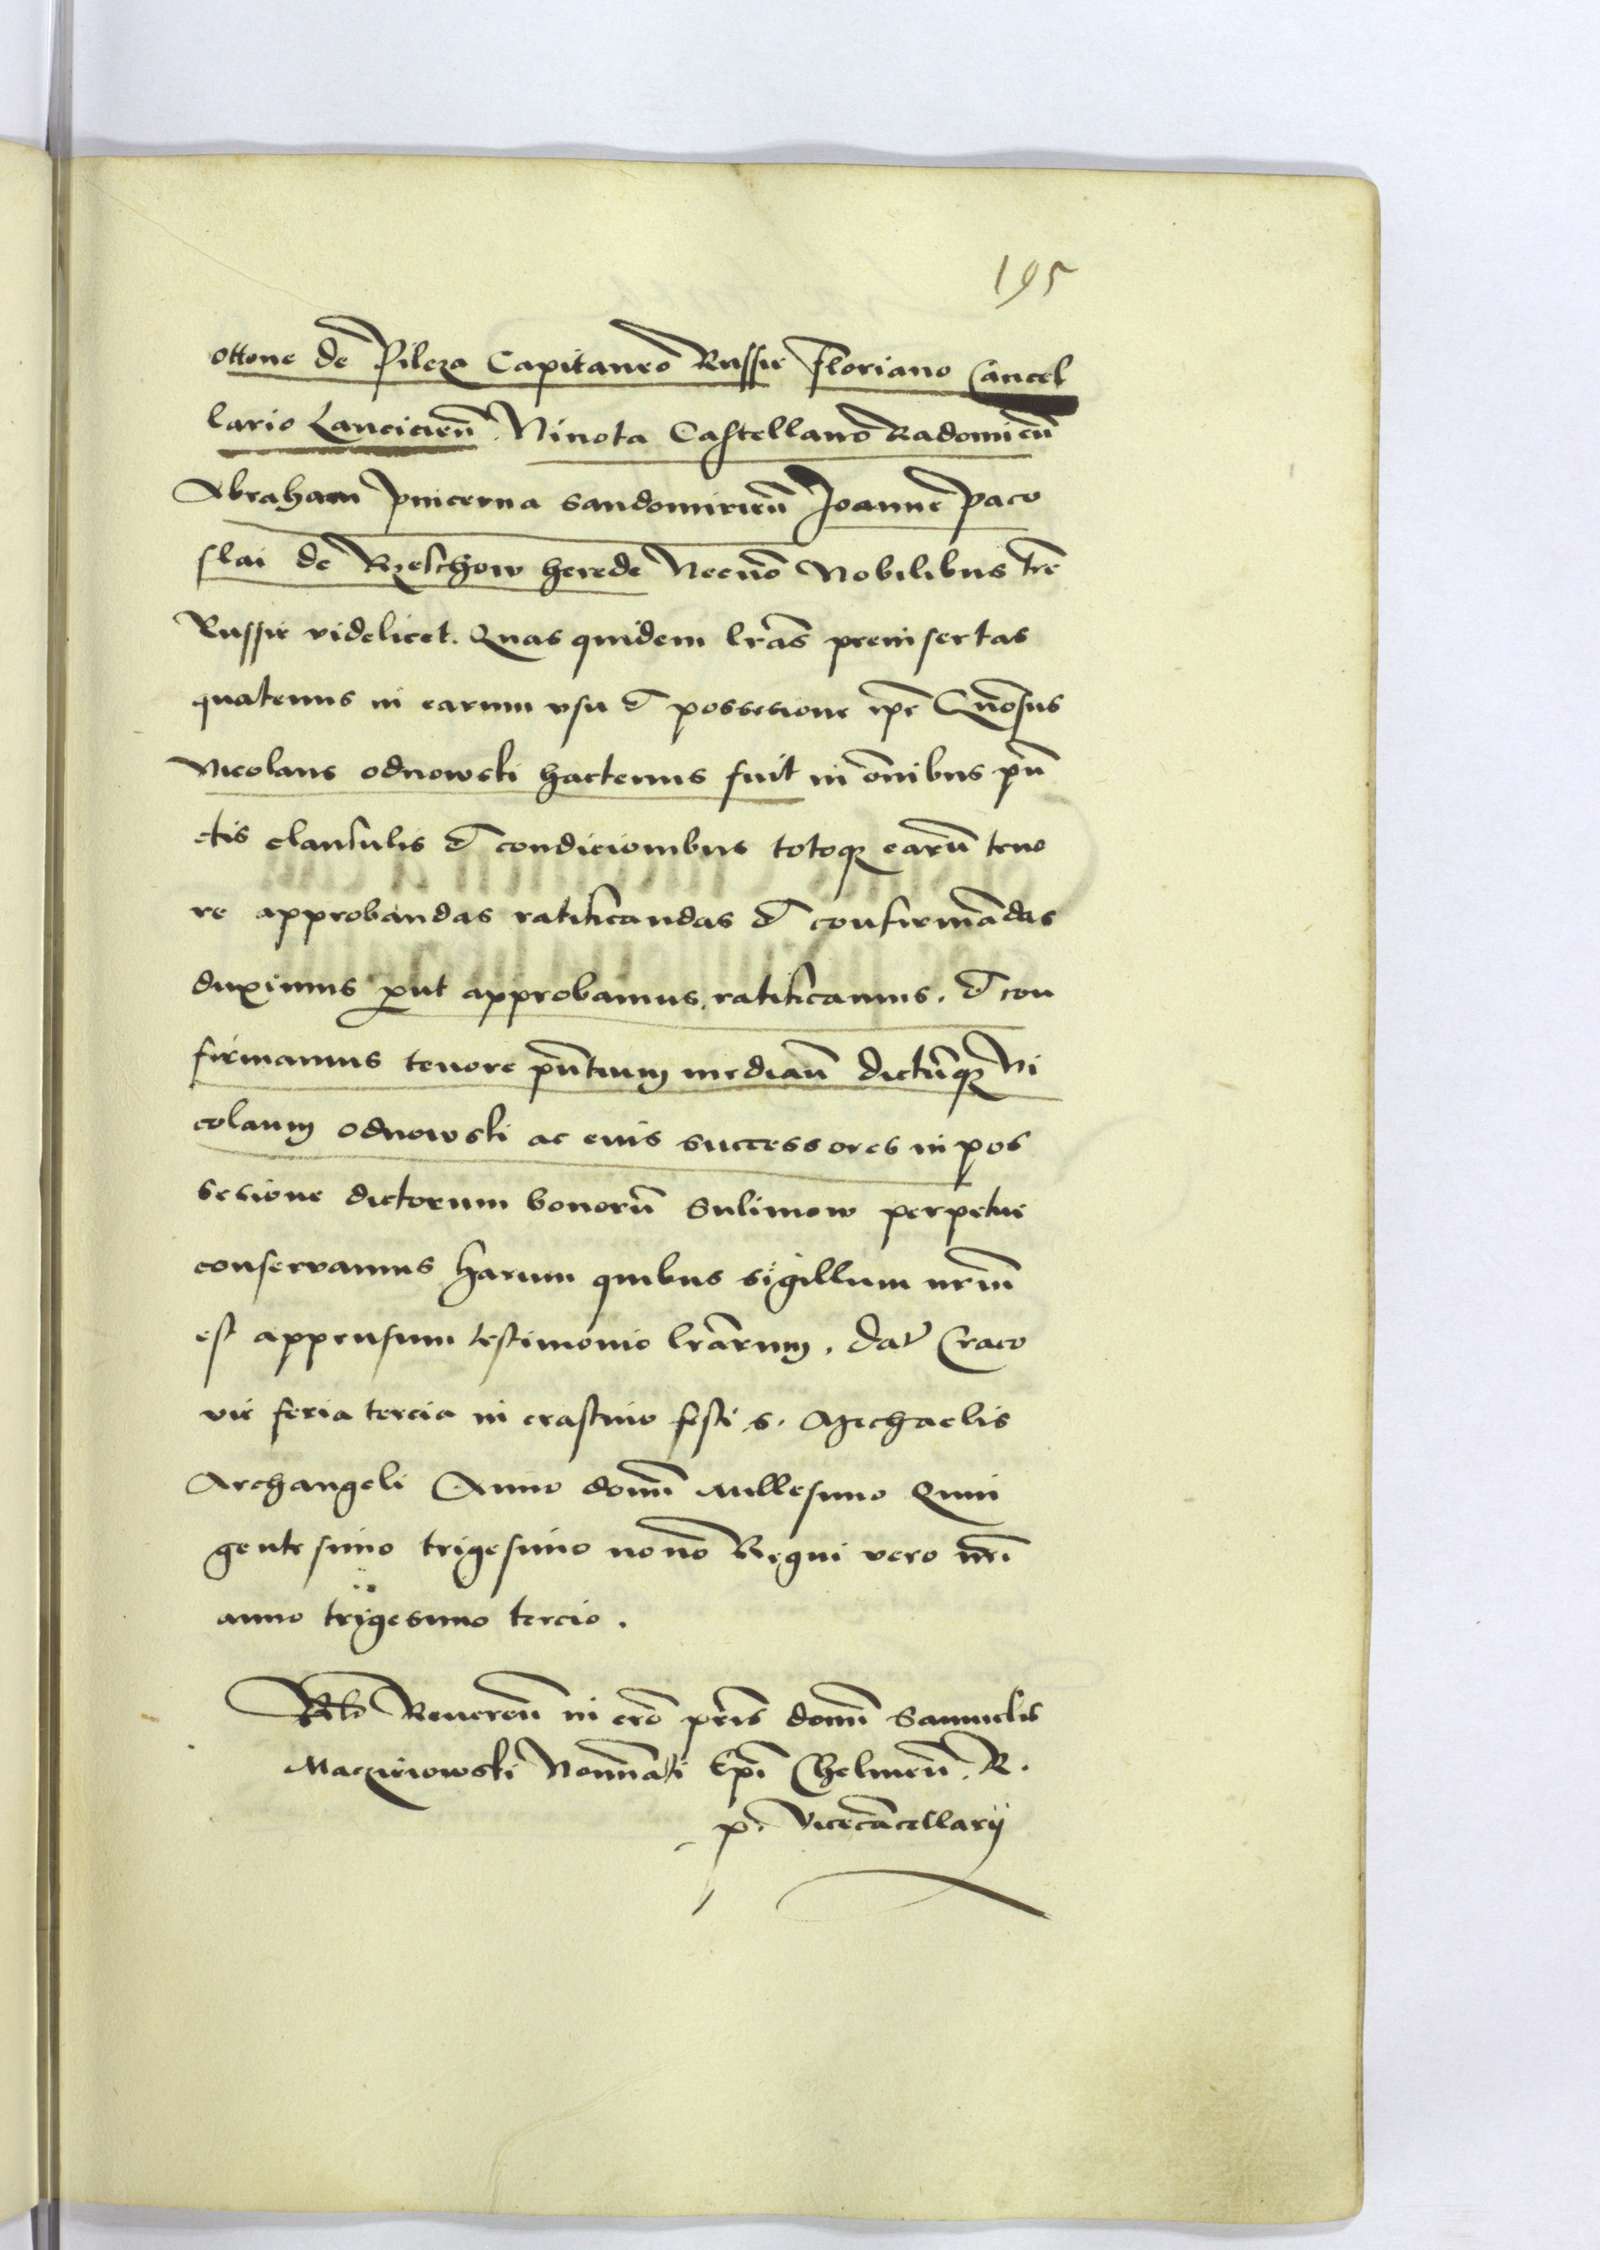 195
ottone de Pilcza Capitaneo Russie Floriano Cancel
lario Lancicieñ. Ninota Castellano Radomieñ
Abraham pincerna sandomirieñ Joanne paco
slai de Rzeschow herede Necnō Nobilibus tr̄e
Russie videlicet. Quas quidem lr̄as preinsertas
quatenus in earum vsu & possessione ip̄e Gn̄osus
Nicolaus odnowski hactenus fuit in om̄ibus pun̄
ctis clausulis & condicionibus totoq; earū teno
re approbandas ratificandas & confirmādas
duximus ꝓut approbamus, ratificamus, & con
firmamus tenore pn̄tium mediañ dictūq; Ni
colaum odnowski ac eius successores in pos
sesione dictorum bonorū Sulimow perpetue
conservamus harum quibus sigillum nr̄m
est appensum testimonio lr̄arum. Dat̄ Craco
vie feria tercia in crastino festi s. Michaelis
Archangeli Anno domī Millesimo Quin
gentesimo trigesimo nono Regni vero nr̄i
anno trigesimo tercio.
Rl̄o Reuereñ in cr̄o pr̄is domī Samuelis
Maczieiowski Nomīati Ep̄i Chelmeñ. R.
p. vicecācellarij